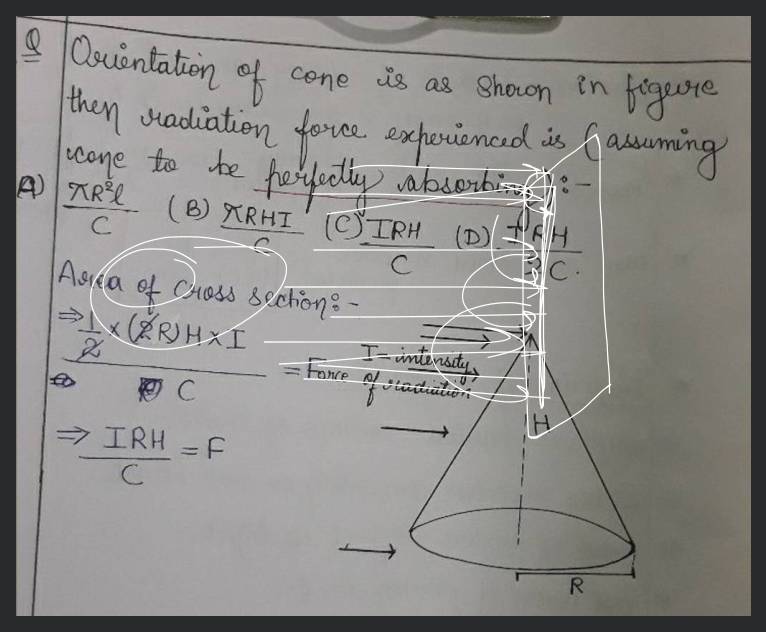 Q Orientation of cone is as Shown in figure
then radiation force experienced is (assuming
cone to be perfectly absorbing):-
(A) πR²l/C (B) πRHI/C (C) IRH/C (D) IRH/2C.
Area of cross section:-
⇒ 1/2 × (2R)H × I / C = Force
I = intensity
of radiation
⇒ IRH/C = F
H
R